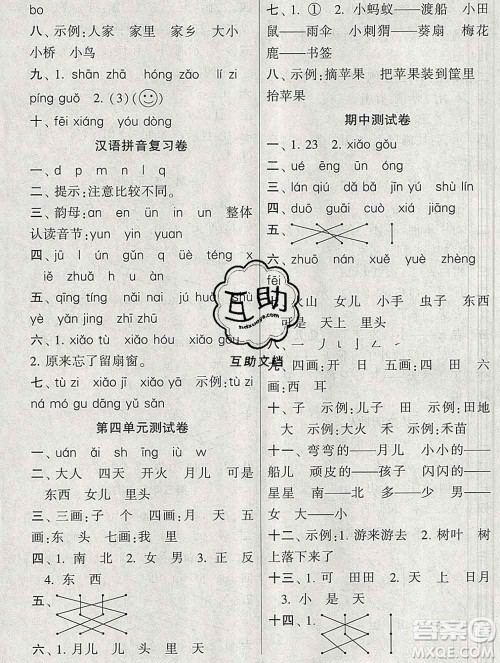 bo
八、示例:人家 家里 家乡 大小
小桥 小鸟
九、1. shān zhā hóng zǎo lí zi
píng guǒ 2. (3)
十、fēi xiáng yóu dòng
汉语拼音复习卷
一、d p m n l q
二、提示:注意比较不同。
三、韵母:an en ün in un 整体
认读音节:yuan yin yun
四、j ü q üè téng x
é zh ǎ h u àn
五、qīng tíng nǎi nai xià
yè yǎn jing zhī zhū
六、1. xiǎo hóu
2. 原来忘了留扇窗。
七、tù xiǎo xiǎo 示例:tù zi
ná mó gu dǎng yǔ sǎn
第四单元测试卷
一、uán ǎi sh t in iǎo
二、大人 四天 开口 月儿 可是
东西 女儿 里头
三、三画:子 个 四画:天 五画:
东 头 去 六画:西
四、1. 南 北 2. 女 男 3. 正 反
4. 东 西
五、
六、1. 月儿 儿 里 头 里 天
七、1. ① 2. 小蚂蚁——渡船 小田
鼠——雨伞 小刺猬——葵扇 梅花
鹿——书签
八、示例:摘苹果 把苹果装到筐里
抬苹果
期中测试卷
一、1. 23 2. xiǎo gǒu
二、ué ēng ūn
三、lán qiū dà dì jīn yú shù lín
四、duō guǎi cuò xià jiǎng
五、
六、zhuō nán xuě yè piāo
fēi
火山 女儿 小手 虫子 东西
可是 天上 里头
八、一 亅
九、四画:开 五画:四 四 六画:
西 耳
十、子 示例:子 禾 示例:禾苗
十一、弯弯的——月儿 小小的——
船儿 顽皮的——孩子 闪闪的——
星星 大大的——树
十二、示例:1. 游来游去 2. 树叶 树
上落下来了
十三、1. 可 田田 2. 月儿 头
3. 小 是 天
十四、
互助
zuduxunyu.com
互助文档
答案圈
MXQE.COM